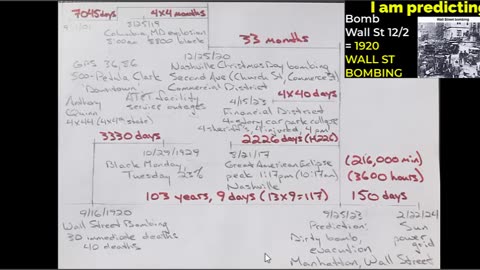 I am predicting
Bomb
Wall St 12/2
= 1920
WALL ST
BOMBING
Wall Street bombing
7045 days
4x4 months
8/25/19
Columbia, MD explosion
5:00am 8800 block
33 months
12/25/20
Nashville Christmas Day bombing
Second Ave (Church St, Commerce St)
Commercial District
GPS 36,86
500-Petula Clark
Downtown
AT&T facility
service outages
Anthony
Quinn
4x44 (4x4th state)
4x40 days
4/15/23
Financial District
4-story car park collapse
4 pm
3330 days
2226 days (H226)
10/29/1929
Black Monday,
Tuesday 23%
8/21/17
Great American Eclipse
peak 1:17pm (10:17am)
Nashville
(216,000 min)
(3600 hours)
103 years, 9 days (13x9=117)
150 days
9/16/1920
Wall Street Bombing
30 immediate deaths
40 deaths
9/25/23
Prediction:
Dirty bomb,
evacuation
Manhattan, Wall Street
2/22/24
Sun
power
grid